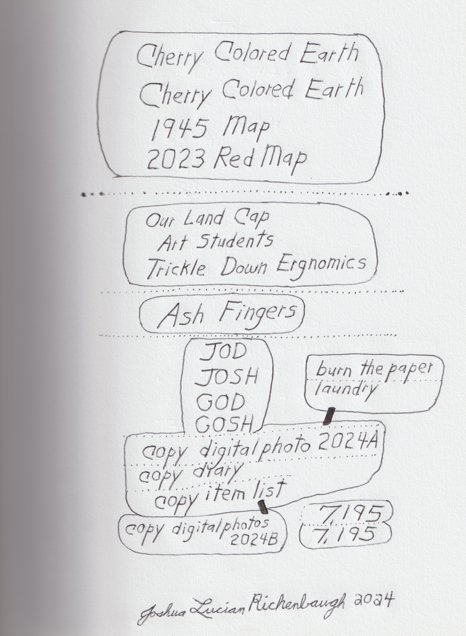 Cherry Colored Earth
Cherry Colored Earth
1945 Map
2023 Red Map
Our Land Cap
Art Students
Trickle Down Ergnomics
Ash Fingers
JOD
JOSH
GOD
GOSH
burn the paper
laundry
copy digital photo 2024A
copy diary
copy item list
copy digital photos
2024B
7,195
7,195
Joshua Lucian Richenbaugh 2024